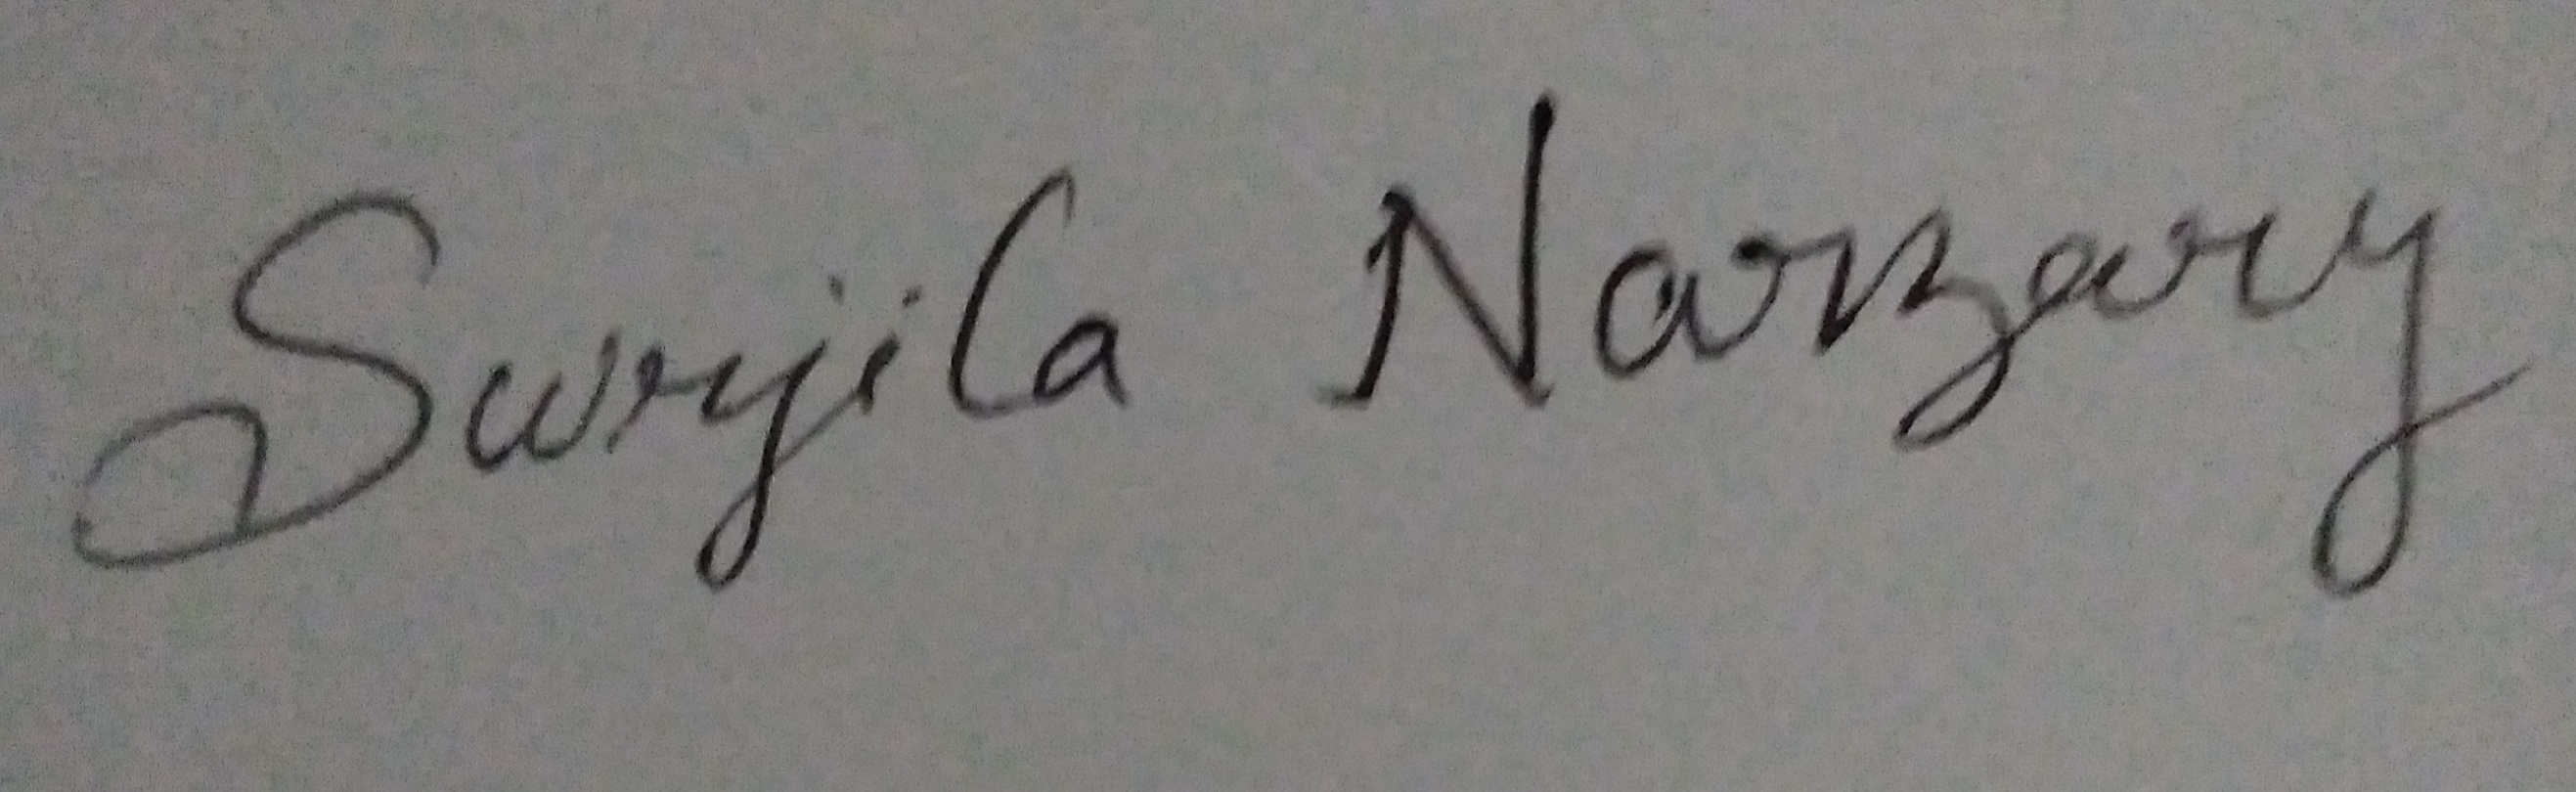 Surjila Narzary